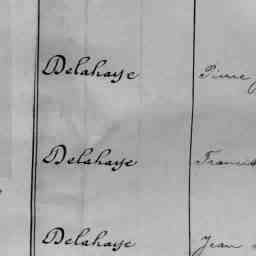 Delahaye Pierre
Delahaye Francis
Delahaye Jean